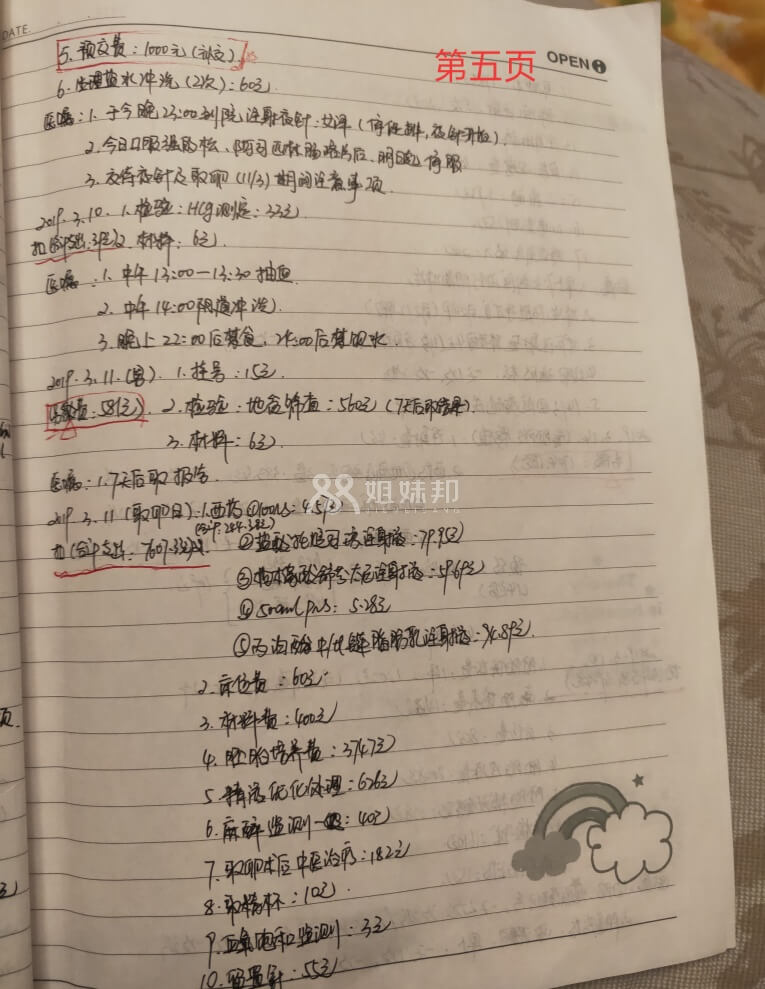 DATE.
第五页
OPEN
5. 预交费：1000元(补交)
6. 生理盐水冲洗(2次)：60元
医嘱：1. 于今晚23:00到院注射夜针：艾泽(停促排,夜针开始).
2. 今日口服强的松、阿司匹林肠溶片后，明日起停服
3. 交待夜针及取卵(11/3)期间注意事项
2019.3.10. 1. 检验：HCg测定：33元
扣(合计支出：39元) 2. 材料：6元.
医嘱：1. 中午13:00—13:30抽血
2. 中午14:00阴道冲洗.
3. 晚上22:00后禁食，24:00后禁饮水.
2019.3.11.(男) 1. 挂号：15元.
花费：581元) 2. 检验：地贫筛查：560元(7天后取结果)
3. 材料：6元
医嘱：1. 7天后取报告
姐妹邦
2019.3.11(取卵日)：1. 西药①100ns：4.51元
(合计：244.38元)
扣(合计支出：7607.38元) ②盐酸 注射液：79.95元
③枸橼酸舒芬太尼注射液：59.69元
④500ml pns：5.28元
⑤丙泊酚中/长链脂肪乳注射液：94.89元.
2. 床位费：60元
3. 材料费：400元
4. 胚胎培养费：3747元
5. 精液优化处理：626元
6. 麻醉监测一 ：40元
7. 取卵术后中医治疗：182元
8. 取精杯：10元.
9. 血氧饱和监测：3元
10. 留置针：55元